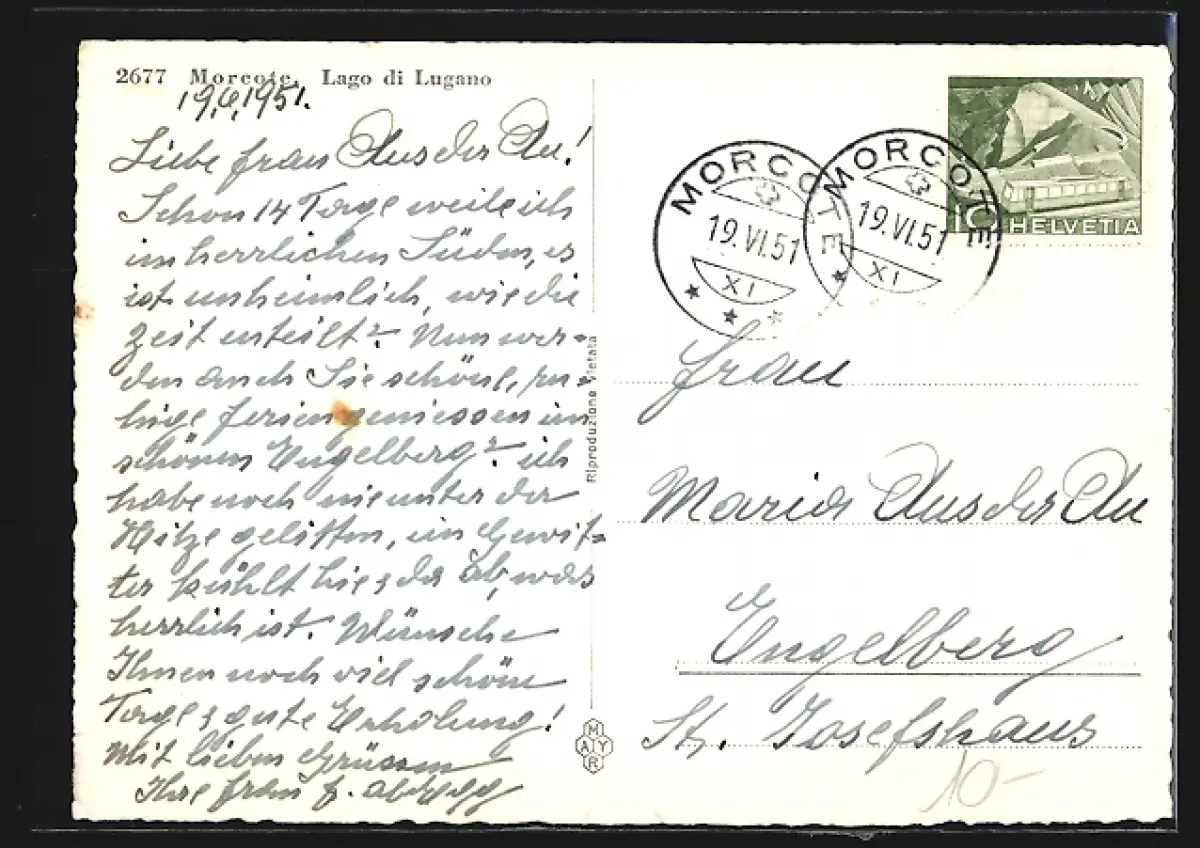 2677 Morcote. Lago di Lugano
19.6.1951.
Liebe Frau Aus der Au!
Schon 14 Tage weile ich
im herrlichen Süden, es
ist unheimlich, wie die
Zeit enteilt? Nun wer-
den auch Sie schöne, ru-
hige Ferien geniessen im
schönen Engelberg? ich
habe noch nie unter der
Hitze gelitten, ein Gewit-
ter kühlt hie & da ab, was
herrlich ist. Wünsche
Ihnen noch viel schöne
Tage & gute Erholung!
Mit lieben Grüssen
Ihre Frau F. Abegg
Riproduzione vietata
MAYR
MORCOTE
19.VI.51
XI
MORCOTE
19.VI.51
XI
10
HELVETIA
Frau
Maria Aus der Au
Engelberg
St. Josefshaus
10-